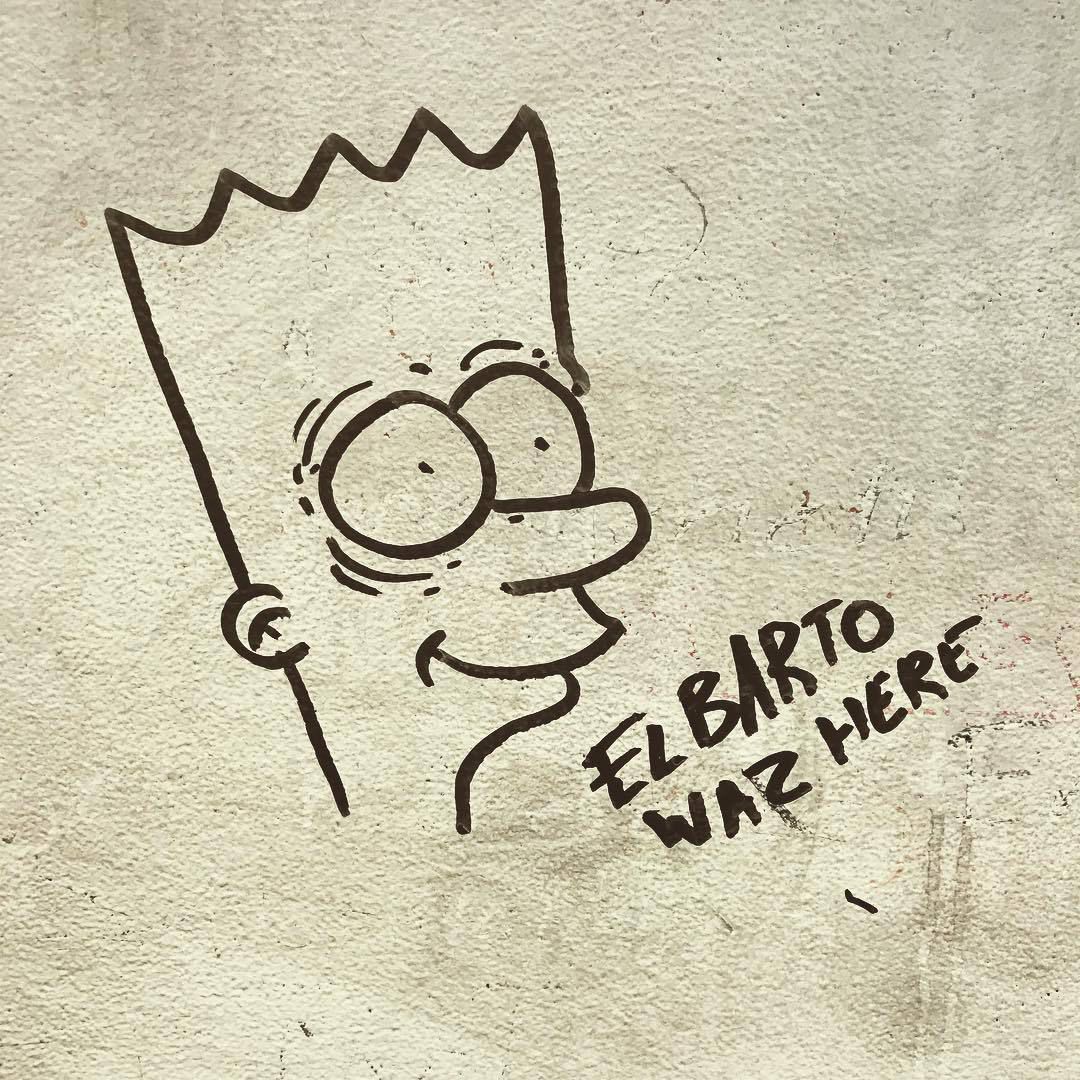 EL BARTO
WAZ HERE